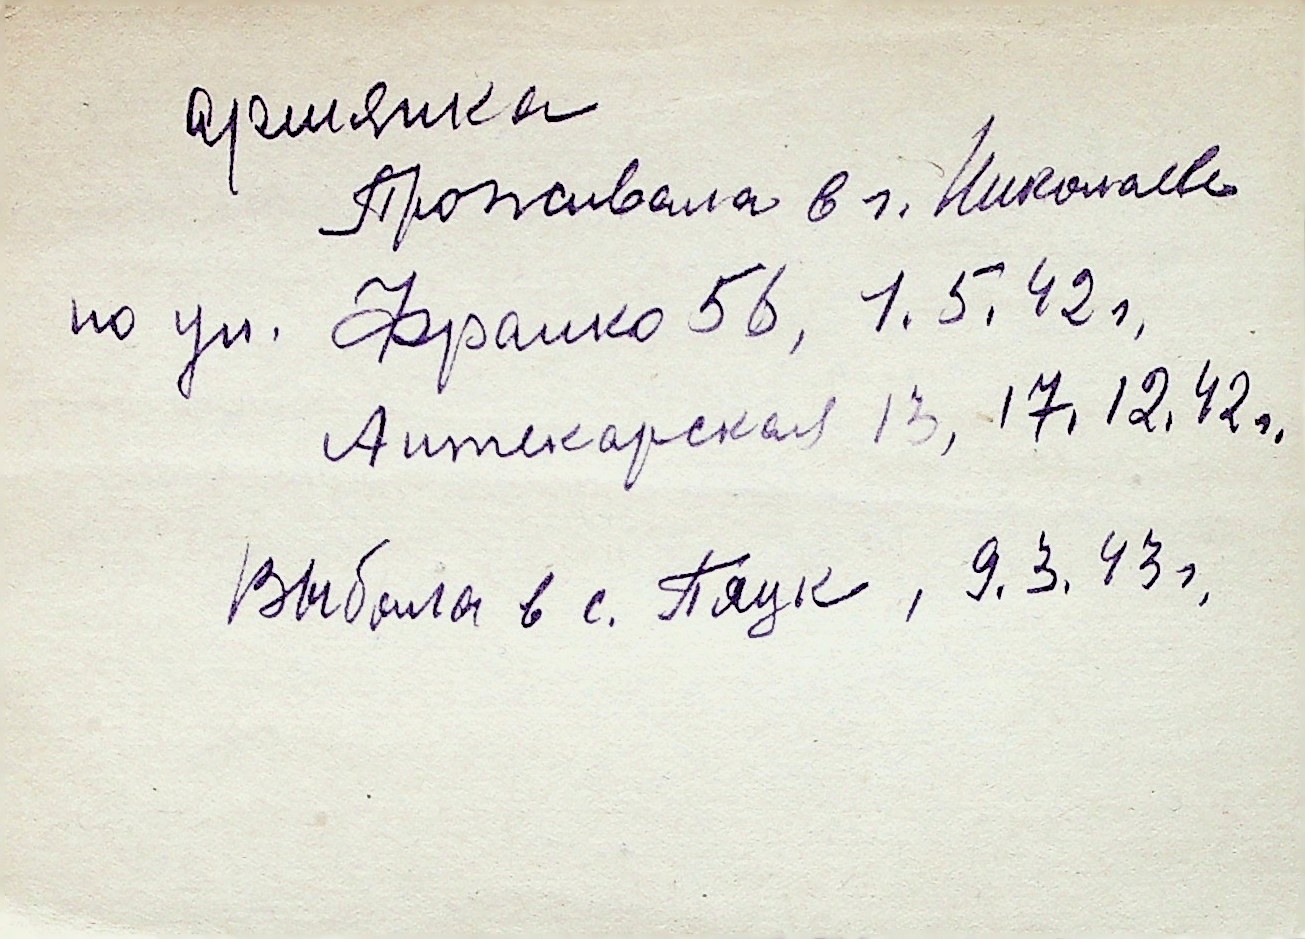 армянка
Проживала в г. Николаеве
по ул. Франко 56, 1.5.42 г,
Аптекарская 13, 17.12.42 г.
Выбыла в с. Пяцк, 9.3.43 г,